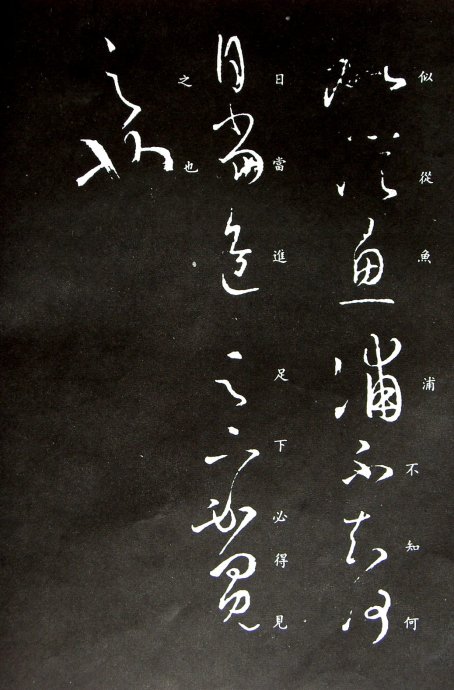 似從魚浦不知何
日當進足下必得見
之也